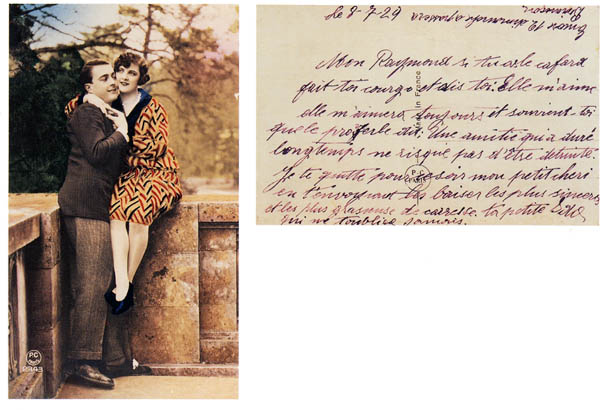 PC
2943
le 8-7-29
Mon Raymond si tu as le cafard
fait toi courge et dis toi Elle m'aime
elle m'aimera toujours et souvient-toi
que le proverbe dit. Une amitié qui a duré
longtemps ne risque pas d'être détruite.
Je te quitte pour ce soir mon petit cheri
en t'envoyant les baiser les plus sincères
et les plus de caresse. ta petite
qui ne t'oublira jamais.
Made in France
PC